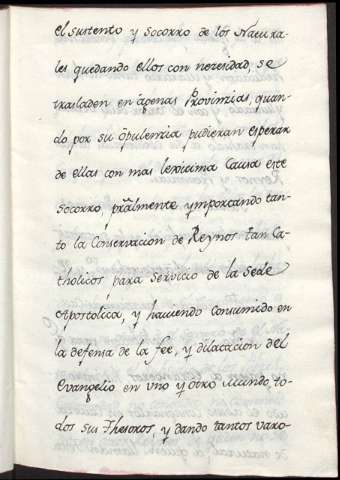 el sustento y socorro de los Natura-
les quedando ellos con nezesidad, se
trasladen en agenas Provinzias, quan-
do por su opulenzia pudieran esperar
de ellas con mas lexitima Causa este
socorro, pralmente ymportando tan-
to la Conservacion de Reynos tan Ca-
tholicos, para servicio de la Sede
Apostolica, y haviendo consumido en
la defensa de la fee, y dilatacion del
Evangelio en uno y otro mundo to-
dos sus Thesoros, y dando tantos varo-